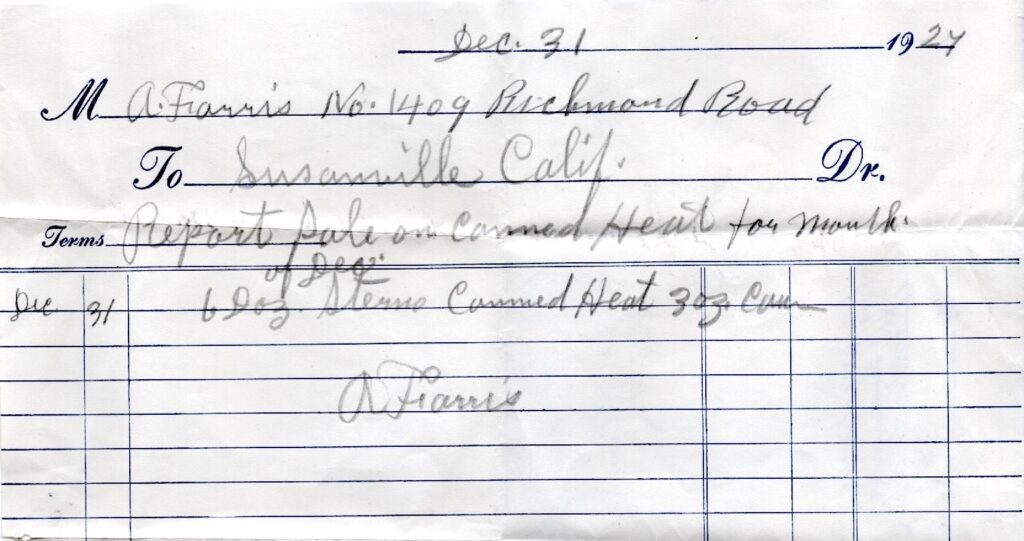 Dec. 31 1927
M A. Farris No. 1409 Richmond Road
To Susanville Calif. Dr.
Terms Report Sale on Canned Heat for Month
of Dec.
Dec. 31 6 Doz. Sterno Canned Heat 3 oz. Can
A Farris